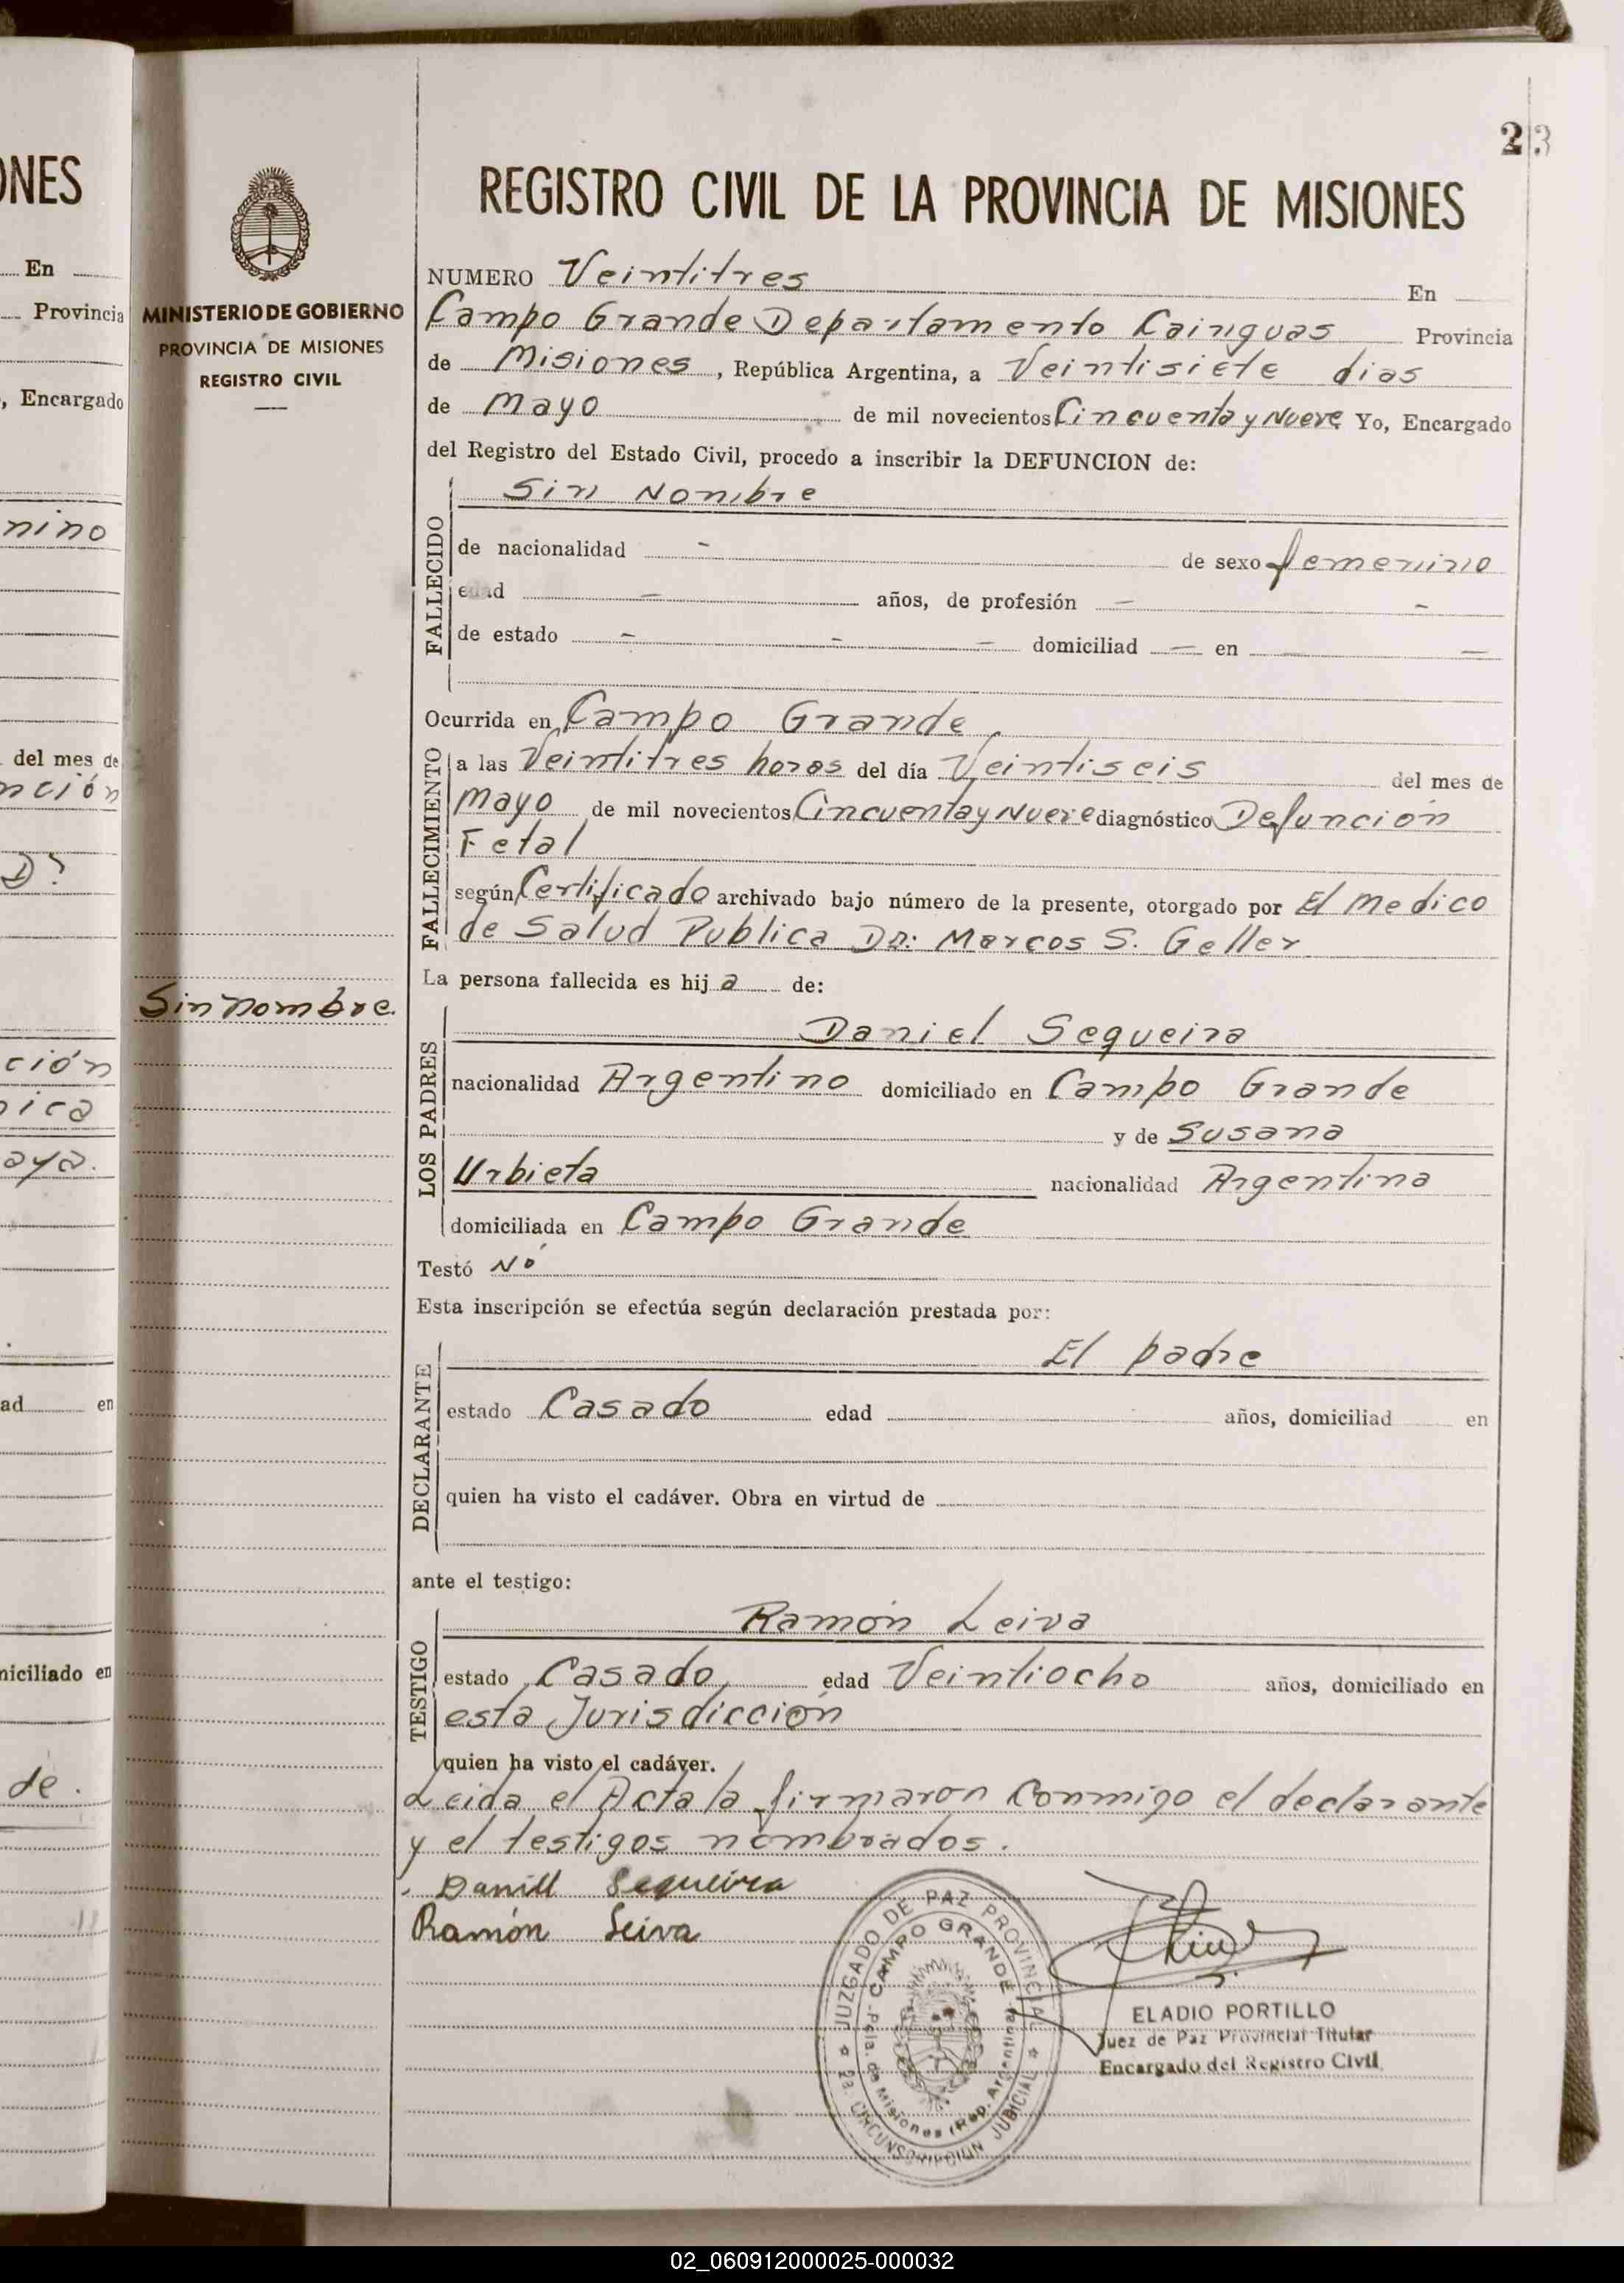 23
REGISTRO CIVIL DE LA PROVINCIA DE MISIONES
MINISTERIO DE GOBIERNO
PROVINCIA DE MISIONES
REGISTRO CIVIL
Sin nombre.
NUMERO Veintitres En
Campo Grande Departamento Cainguas Provincia
de Misiones, República Argentina, a Veintisiete dias
de Mayo de mil novecientos Cincuenta y Nueve Yo, Encargado
del Registro del Estado Civil, procedo a inscribir la DEFUNCION de:
FALLECIDO
Sin Nombre
de nacionalidad - de sexo femenino
edad - años, de profesión - -
de estado - - - domiciliad - en - -
Ocurrida en Campo Grande
FALLECIMIENTO
a las Veintitres horas del día Veintiseis del mes de
Mayo de mil novecientos Cincuenta y Nueve diagnóstico Defunción
Fetal
según Certificado archivado bajo número de la presente, otorgado por El Medico
de Salud Publica Dr: Marcos S. Geller
La persona fallecida es hija de:
LOS PADRES
Daniel Sequeira
nacionalidad Argentino domiciliado en Campo Grande
y de Susana
Urbieta nacionalidad Argentina
domiciliada en Campo Grande
Testó Nó
Esta inscripción se efectúa según declaración prestada por:
DECLARANTE
El padre
estado Casado edad años, domiciliad en
quien ha visto el cadáver. Obra en virtud de
ante el testigo:
TESTIGO
Ramón Leiva
estado Casado edad Veintiocho años, domiciliado en
esta Jurisdicción
quien ha visto el cadáver.
Leida el Acta la firmaron conmigo el declarante
y el testigos nombrados.
Daniel Sequeira
Ramón Leiva
JUZGADO DE PAZ PROVINCIAL
CAMPO GRANDE
Pcia. de Misiones (Rep. Argentina)
2a. CIRCUNSCRIPCION JUDICIAL
ELADIO PORTILLO
Juez de Paz Provincial Titular
Encargado del Registro Civil
ONES
En
Provincia
, Encargado
nino
del mes de
nción
D?
ción
ica
aya.
ad en
niciliado en
de.
02_060912000025-000032